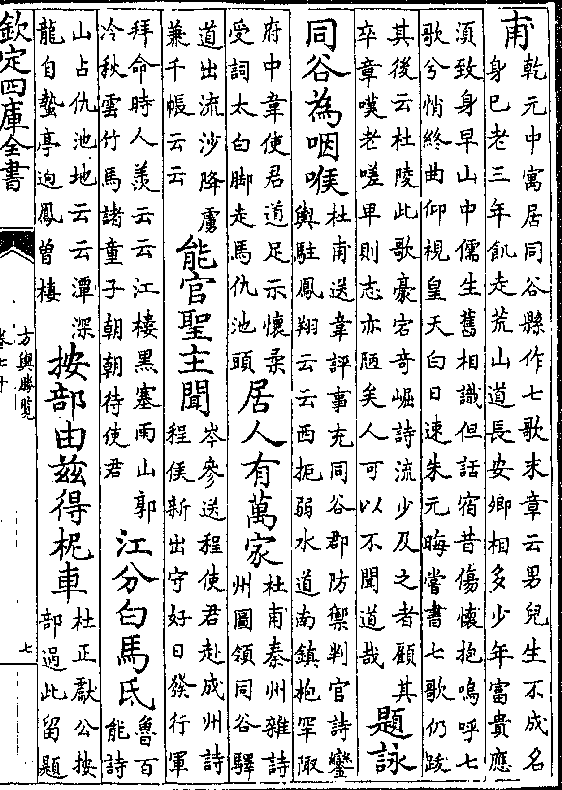 甫乾元中寓居同谷縣作七歌末章云男兒生不成名
身已老三年飢走荒山道長安卿相多少年富貴應
須致身早山中儒生舊相識但話宿昔傷懷抱嗚呼七
歌兮悄終曲仰視皇天白日速朱元晦嘗書七歌仍跋
其後云杜陵此歌豪宕奇崛詩流少及之者顧其
卒章嘆老嗟卑則志亦陋矣人可以不聞道哉
題詠
同谷為咽喉
杜甫送韋評事充同谷郡防禦判官詩鑾
輿駐鳳翔云云西扼弱水道南鎮枹罕陬
府中韋使君道足示懷柔
受詞太白脚走馬仇池頭
居人有萬家
杜甫秦州雜詩
州圖領同谷驛
道出流沙降虜
兼千帳云云
能官聖主聞
岑參送程使君赴成州詩
程侯新出守好日發行軍
拜命時人羨云云江樓黑塞雨山郭
冷秋雲竹馬諸童子朝朝待使君
江分白馬氐
魯百
能詩
山占仇池地云云潭深
龍自蟄亭逈鳳曽棲
按部由兹得枙車
杜正獻公按
部過此留題
欽定四庫全書
方輿勝覧
卷七十
七